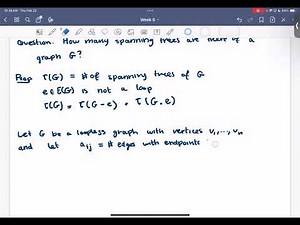 Week 6
Question: How many spanning trees are there of a
graph G?
Prop τ(G) = # of spanning trees of G
e∈E(G) is not a loop
τ(G) = τ(G-e) + τ(G·e)
Let G be a loopless graph with vertices v₁,...,vₙ
and let aᵢⱼ = # edges with endpoints